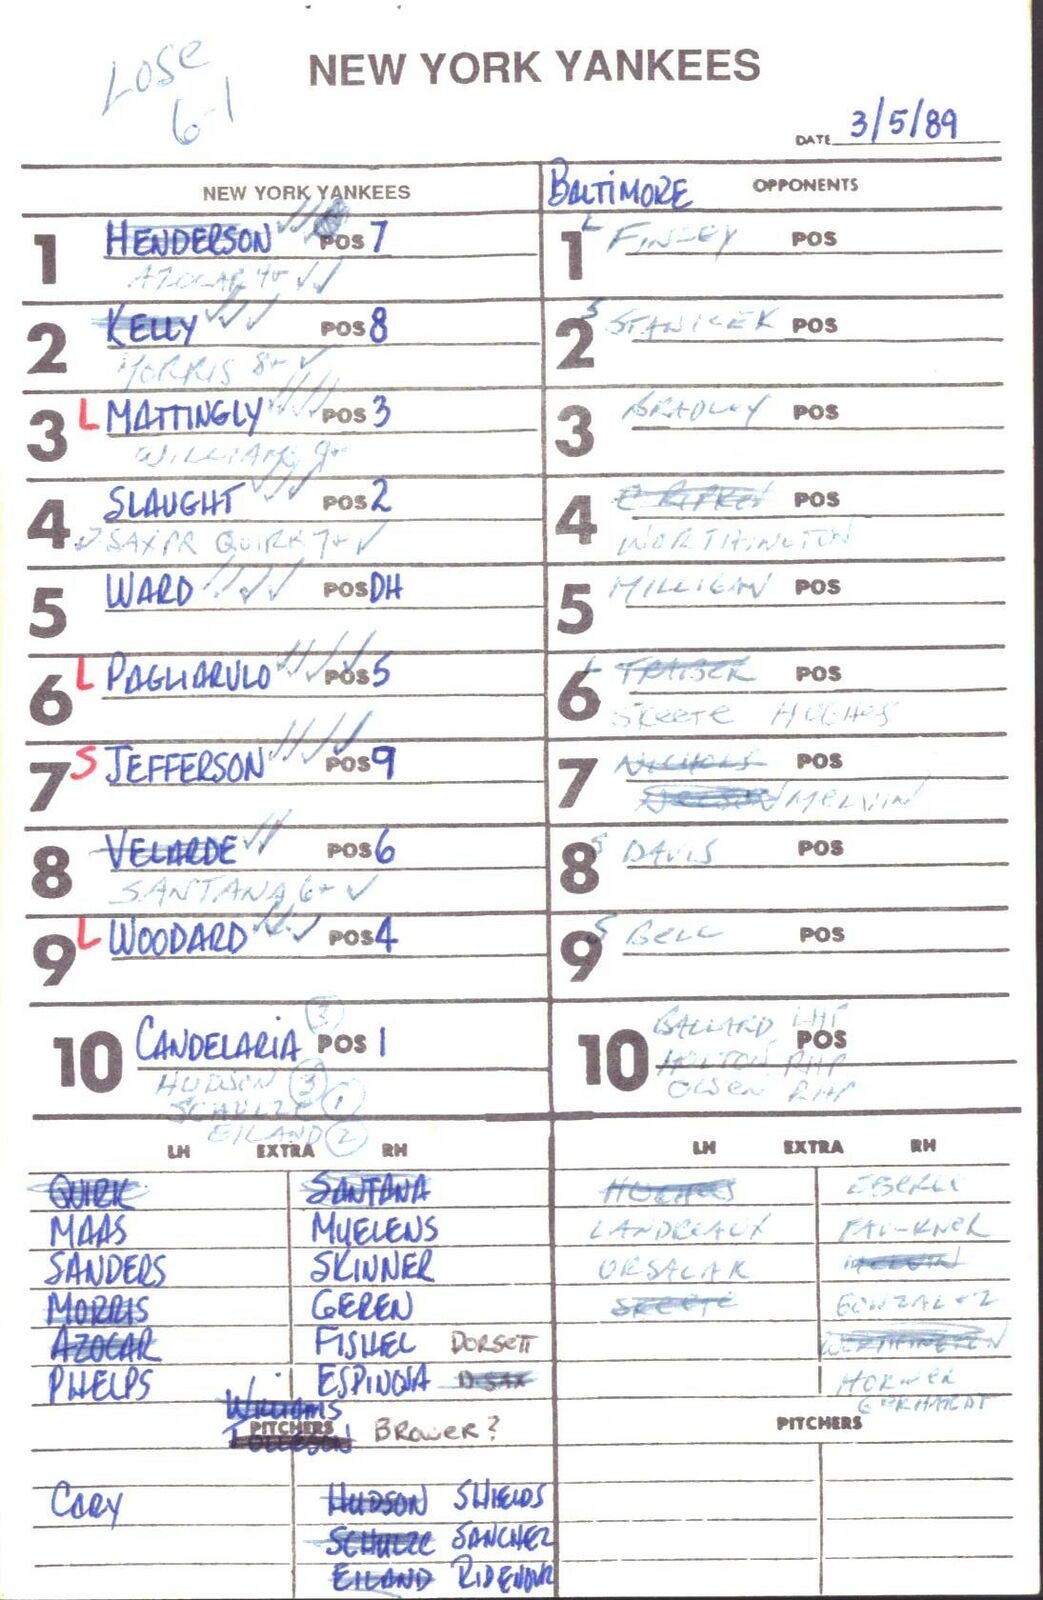 LOSE
6-1
NEW YORK YANKEES
DATE 3/5/89
NEW YORK YANKEES
BALTIMORE OPPONENTS
1 HENDERSON POS 7
AZOCAR 4+ ✓✓
1 L FINLEY POS
2 KELLY POS 8
MORRIS 8+ ✓
2 S STANICEK POS
3 L MATTINGLY POS 3
WILLIAMS 9+
3 BRADLEY POS
4 SLAUGHT POS 2
SAX PR QUIRK 7+ ✓
4 C RIPKEN POS
WORTHINGTON
5 WARD POS DH
5 MILLIGAN POS
6 L PAGLIARULO POS 5
6 L TRABER POS
SKEETE HUGHES
7 S JEFFERSON POS 9
7 NICHOLS POS
MELVIN
8 VELARDE POS 6
SANTANA 6+ ✓
8 S DAVIS POS
9 L WOODARD POS 4
9 S BELL POS
10 CANDELARIA 3 POS 1
HUDSON 3
SCHULZE 1
EILAND 2
10 BALLARD LHP POS
HOLTON RHP
OLSEN RHP
LH EXTRA RH
QUIRK SANTANA
MAAS MUELENS
SANDERS SKINNER
MORRIS GEREN
AZOCAR FISHEL DORSETT
PHELPS ESPINOSA D. SAX
WILLIAMS
TOLLESON
PITCHERS BROWER?
CARY HUDSON SHIELDS
SCHULZE SANCHEZ
EILAND RIDENOUR
LH EXTRA RH
HUGHES EBERLE
LANDREAUX FAULKNER
ORSALAK MELVIN
SKEETE GONZALEZ
WORTHINGTON
HORNER
GERHARDT
PITCHERS